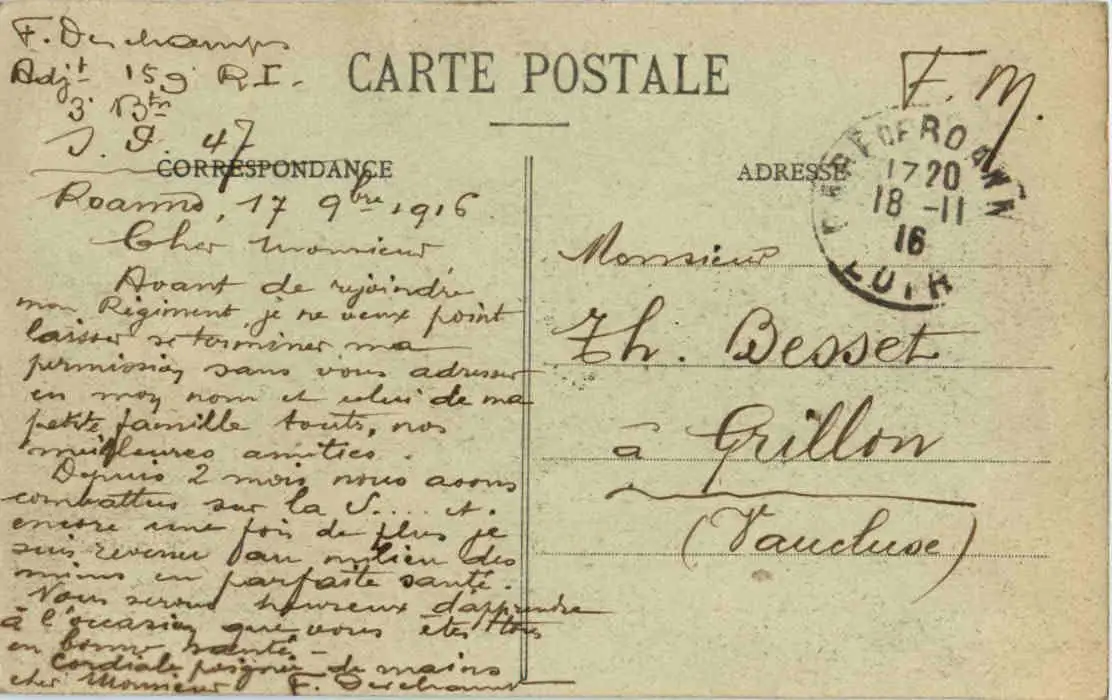 F. Deschamps
Adjt 159 R.I.
3 Btn
S. P. 47
CARTE POSTALE
F. M.
CORRESPONDANCE
ADRESSE
17 20
18 -11
16
LOIRE
Roanne, 17 9bre 1916
Cher Monsieur
Avant de rejoindre
mon Régiment je ne veux point
laisser se terminer ma
permission sans vous adresser
en mon nom et celui de ma
petite famille toute, nos
meilleures amitiés.
Depuis 2 mois nous avons
combattus sur la S.... et.
encore une fois de plus je
suis revenu au milieu des
miens en parfaite santé.
Nous serons heureux d'apprendre
à l'occasion que vous êtes tous
en bonne santé -
Cordiale poignée de mains
cher Monsieur F. Deschamps
Monsieur
Th. Besset
à Grillon
(Vaucluse)